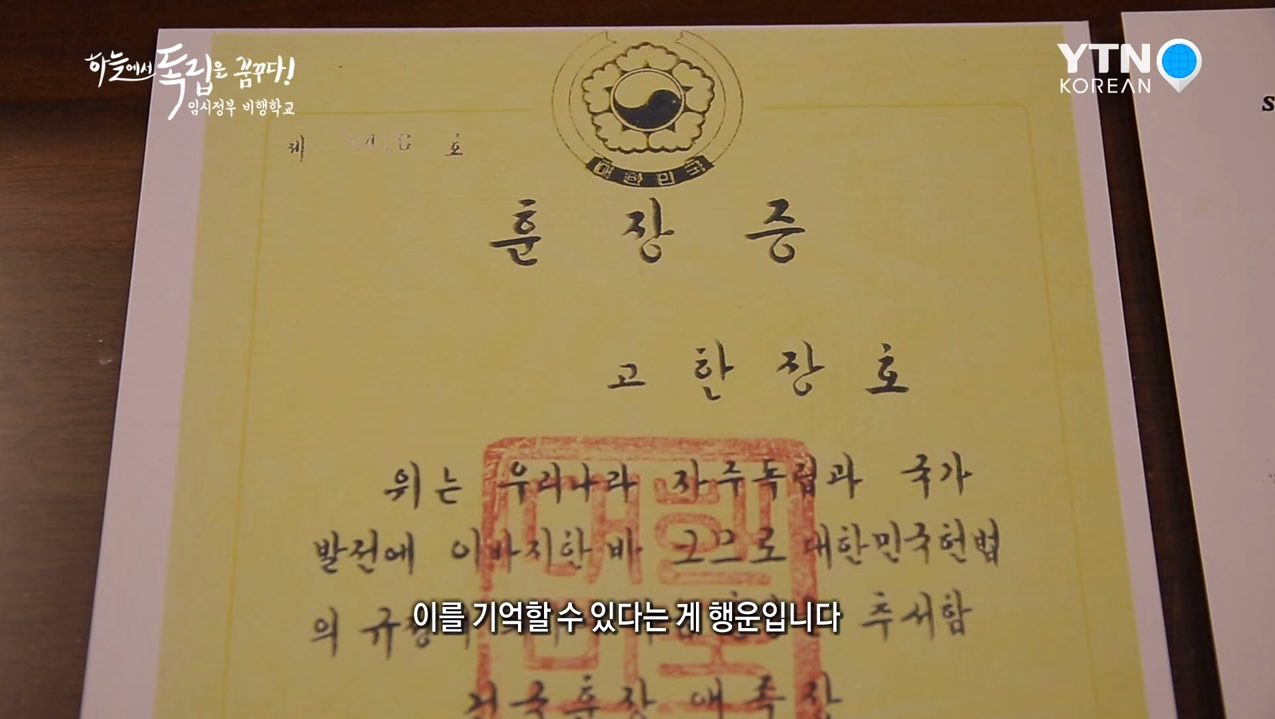 하늘에서 독립을 꿈꾸다!
임시정부 비행학교
YTN
KOREAN
대한민국
제 호
훈장증
고 한장호
위는 우리나라 자주독립과 국가
발전에 이바지한바 그므로 대한민국헌법
의 규정 추서함
이를 기억할 수 있다는 게 행운입니다
건국훈장 애족장
S